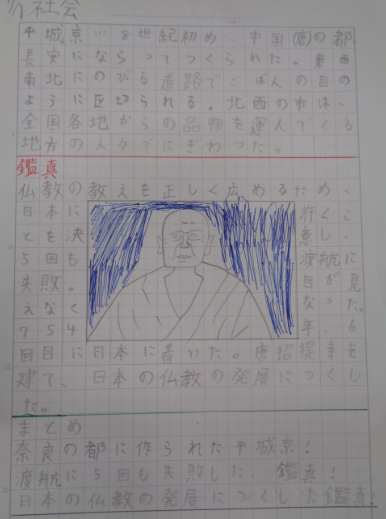 社会
平城京…8世紀初め、中国(唐)の都、
長安にならってつくられた。東西
南北にのびる道路でごばんの目の
ように区切られる。北西の市は、
全国各地からの品物を運んでくる
地方の人々でにぎわった。
鑑真
仏教の教えを正しく広めるため、
日本に行くこ
とを決意し、
5回も渡航に
失敗。目が見
えなくなった。
754年、6
回目に日本に着いた。唐招提寺を
建て、日本の仏教の発展につくし
た。
まとめ
奈良の都に作られた平城京!
渡航に5回も失敗した、鑑真!
日本の仏教の発展につくした鑑真!